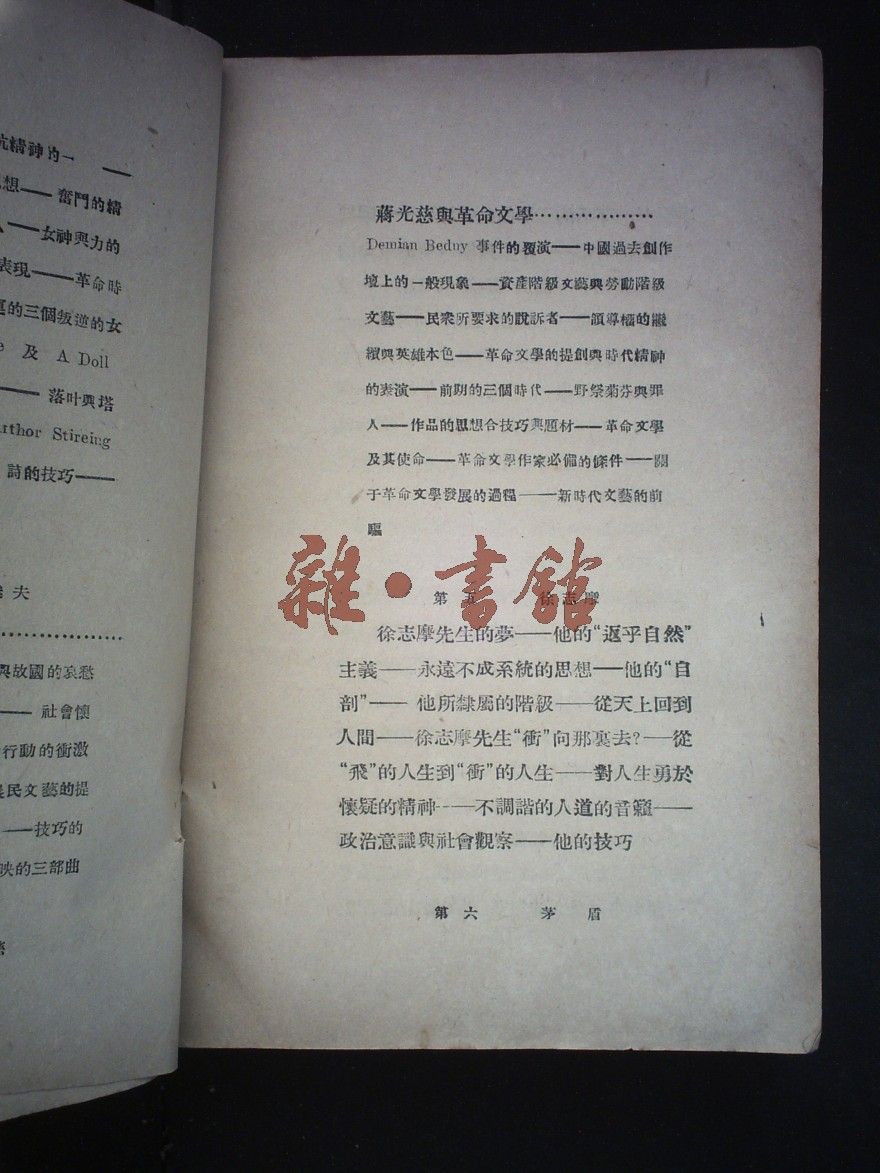 抗精神的一——
思想——奮鬥的精
——女神與力的
表現——革命時
的三個叛逆的女
及 A Doll
——落叶與塔
Stireing
詩的技巧——
夫
與故國的哀愁
——社會懷
行動的衝激
民文藝的提
——技巧的
映的三部曲
蔣光慈與革命文學………………
Demian Bedny 事件的覆演——中國過去創作
壇上的一般現象——資產階級文藝與勞動階級
文藝——民衆所要求的說訴者——領導權的繼
續與英雄本色——革命文學的提創與時代精神
的表演——前期的三個時代——野祭菊芬與罪
人——作品的思想合技巧與題材——革命文學
及其使命——革命文學作家必備的條件——關
于革命文學發展的過程——新時代文藝的前
驅
第五 徐志摩
雜·書館
徐志摩先生的夢——他的“返乎自然”
主義——永遠不成系統的思想—他的“自
剖”—— 他所隸屬的階級——從天上回到
人間——徐志摩先生“衝”向那裏去?——從
“飛”的人生到“衝”的人生——對人生勇於
懷疑的精神——不調諧的人道的音籟——
政治意識與社會觀察——他的技巧
第六 茅盾